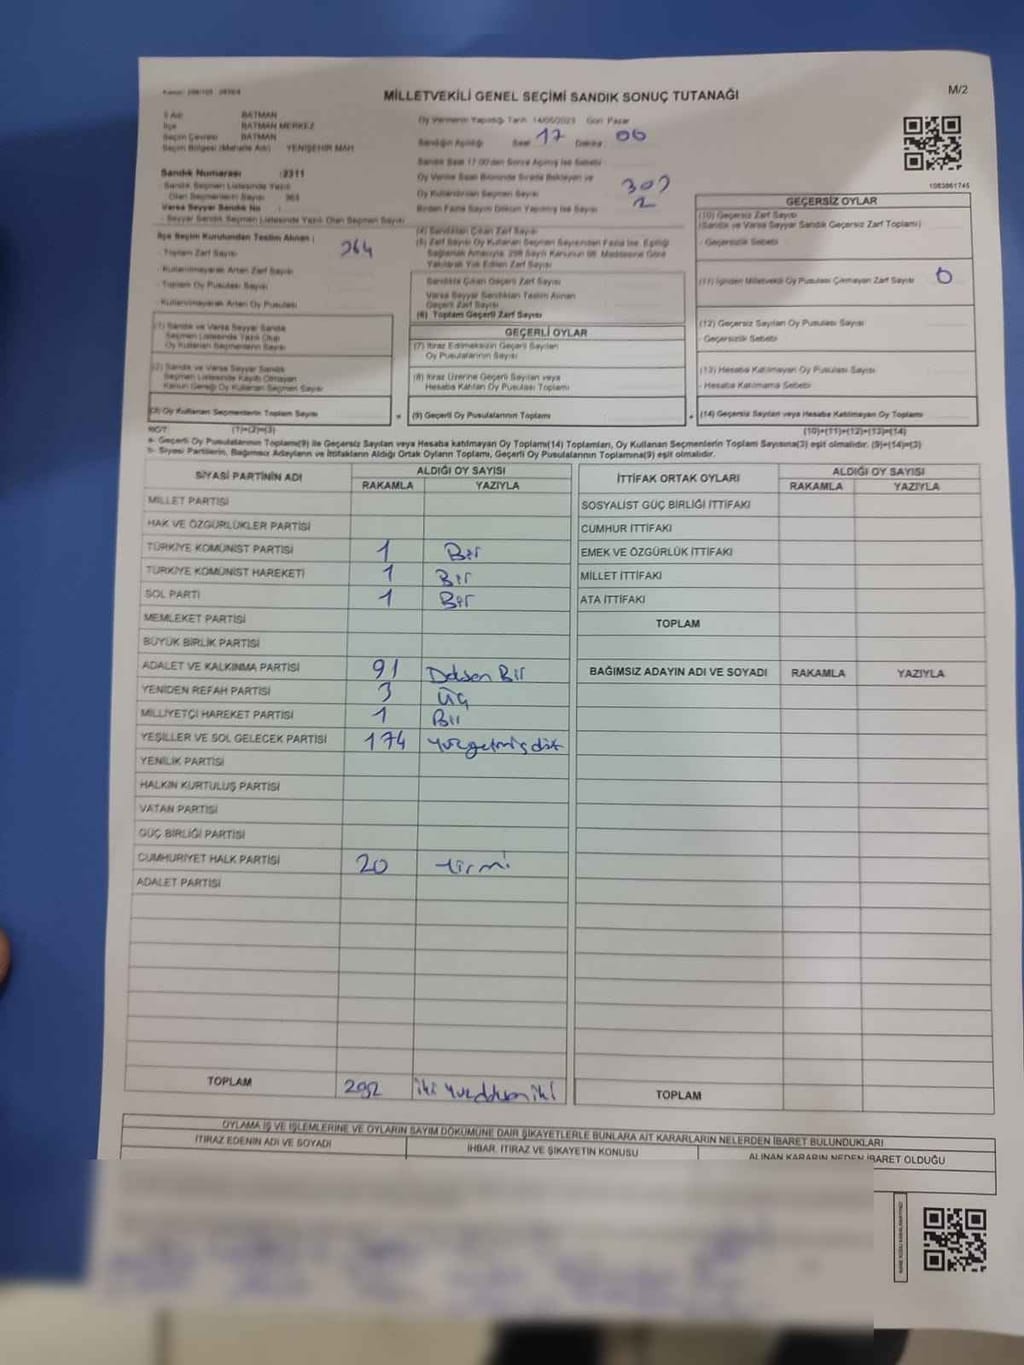 M/2
MİLLETVEKİLİ GENEL SEÇİMİ SANDIK SONUÇ TUTANAĞI
İl Adı BATMAN
İlçe BATMAN MERKEZ
Seçim Çevresi BATMAN
Seçim Bölgesi (Mahalle Adı) YENİŞEHİR MAH
Sandık Numarası :2311
Sandık Seçmen Listesinde Yazılı
Olan Seçmenlerin Sayısı
Varsa Seyyar Sandık No
Seyyar Sandık Seçmen Listesinde Yazılı Olan Seçmen Sayısı
İlçe Seçim Kurulundan Teslim Alınan :
- Toplam Zarf Sayısı 364
- Kullanılmayarak Artan Zarf Sayısı
- Toplam Oy Pusulası Sayısı
- Kullanılmayarak Artan Oy Pusulası
(1) Sandık ve Varsa Seyyar Sandık
Seçmen Listesinde Yazılı Olup
Oy Kullanan Seçmenlerin Sayısı
(2) Sandık ve Varsa Seyyar Sandık
Seçmen Listesinde Kayıtlı Olmayan
Kanun Gereği Oy Kullanan Seçmen Sayısı
(3) Oy Kullanan Seçmenlerin Toplam Sayısı
Oy Vermenin Yapıldığı Tarih 14/05/2023 Gün Pazar
Sandığın Açıldığı Saat 17 Dakika 06
Sandık Saat 17:00'den Sonra Açılmış İse Sebebi
Oy Verme Saati Bitiminde Sırada Bekleyen ve
Oy Kullandırılan Seçmen Sayısı
Birden Fazla Sayım Döküm Yapılmış İse Sayısı
(4) Sandıktan Çıkan Zarf Sayısı
(5) Zarf Sayısı Oy Kullanan Seçmen Sayısından Fazla İse, Eşitliği
Sağlamak Amacıyla, 298 Sayılı Kanunun 98. Maddesine Göre
Yakılarak Yok Edilen Zarf Sayısı
Sandıkta Çıkan Geçerli Zarf Sayısı
Varsa Seyyar Sandıktan Teslim Alınan
Geçerli Zarf Sayısı
(6) Toplam Geçerli Zarf Sayısı
GEÇERLİ OYLAR
(7) İtiraz Edilmeksizin Geçerli Sayılan
Oy Pusulalarının Sayısı
(8) İtiraz Üzerine Geçerli Sayılan veya
Hesaba Katılan Oy Pusulası Toplamı
(9) Geçerli Oy Pusulalarının Toplamı
1083861745
GEÇERSİZ OYLAR
(10) Geçersiz Zarf Sayısı
(Sandık ve Varsa Seyyar Sandık Geçersiz Zarf Toplamı)
- Geçersizlik Sebebi
(11) İçinden Milletvekili Oy Pusulası Çıkmayan Zarf Sayısı
(12) Geçersiz Sayılan Oy Pusulası Sayısı
- Geçersizlik Sebebi
(13) Hesaba Katılmayan Oy Pusulası Sayısı
- Hesaba Katılmama Sebebi
(14) Geçersiz Sayılan veya Hesaba Katılmayan Oy Toplamı
NOT (1)+(2)=(3) (10)+(11)+(12)+(13)=(14)
a- Geçerli Oy Pusulalarının Toplamı(9) ile Geçersiz Sayılan veya Hesaba katılmayan Oy Toplamı(14) Toplamları, Oy Kullanan Seçmenlerin Toplam Sayısına(3) eşit olmalıdır. (9)+(14)=(3)
b- Siyasi Partilerin, Bağımsız Adayların ve İttifakların Aldığı Ortak Oyların Toplamı, Geçerli Oy Pusulalarının Toplamına(9) eşit olmalıdır.
SİYASİ PARTİNİN ADI ALDIĞI OY SAYISI
RAKAMLA YAZIYLA
MİLLET PARTİSİ
HAK VE ÖZGÜRLÜKLER PARTİSİ
TÜRKİYE KOMÜNİST PARTİSİ 1 Bir
TÜRKİYE KOMÜNİST HAREKETİ 1 Bir
SOL PARTİ 1 Bir
MEMLEKET PARTİSİ
BÜYÜK BİRLİK PARTİSİ
ADALET VE KALKINMA PARTİSİ 91 Doksan Bir
YENİDEN REFAH PARTİSİ 3 Üç
MİLLİYETÇİ HAREKET PARTİSİ 1 Bir
YEŞİLLER VE SOL GELECEK PARTİSİ 174
YENİLİK PARTİSİ
HALKIN KURTULUŞ PARTİSİ
VATAN PARTİSİ
GÜÇ BİRLİĞİ PARTİSİ
CUMHURİYET HALK PARTİSİ 20 Yirmi
ADALET PARTİSİ
TOPLAM 292
İTTİFAK ORTAK OYLARI ALDIĞI OY SAYISI
RAKAMLA YAZIYLA
SOSYALİST GÜÇ BİRLİĞİ İTTİFAKI
CUMHUR İTTİFAKI
EMEK VE ÖZGÜRLÜK İTTİFAKI
MİLLET İTTİFAKI
ATA İTTİFAKI
TOPLAM
BAĞIMSIZ ADAYIN ADI VE SOYADI RAKAMLA YAZIYLA
TOPLAM
OYLAMA İŞ VE İŞLEMLERİNE VE OYLARIN SAYIM DÖKÜMÜNE DAİR ŞİKAYETLERLE BUNLARA AİT KARARLARIN NELERDEN İBARET BULUNDUKLARI
İTİRAZ EDENİN ADI VE SOYADI İHBAR, İTİRAZ VE ŞİKAYETİN KONUSU ALINAN KARARIN NEDEN İBARET OLDUĞU